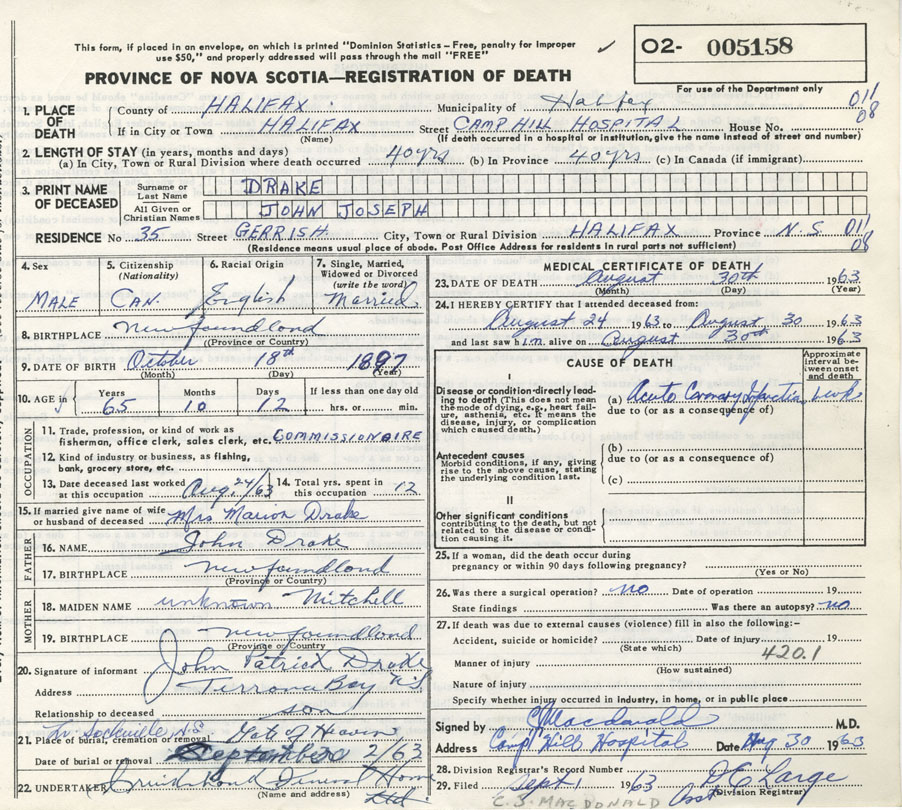 This form, if placed in an envelope, on which is printed "Dominion Statistics – Free, penalty for improper
use $50," and properly addressed will pass through the mail "FREE"
✓
O2- 005158
For use of the Department only
PROVINCE OF NOVA SCOTIA—REGISTRATION OF DEATH
1. PLACE OF DEATH
County of HALIFAX Municipality of Halifax 011
08
If in City or Town HALIFAX Street CAMP HILL HOSPITAL House No.
(Name) (If death occurred in a hospital or institution, give the name instead of street and number)
2. LENGTH OF STAY (in years, months and days)
(a) In City, Town or Rural Division where death occurred 40 yrs (b) In Province 40 yrs (c) In Canada (if immigrant)
3. PRINT NAME OF DECEASED
Surname or Last Name DRAKE
All Given or Christian Names JOHN JOSEPH
RESIDENCE No 35 Street GERRISH City, Town or Rural Division HALIFAX Province N.S 011
08
(Residence means usual place of abode. Post Office Address for residents in rural parts not sufficient)
4. Sex
MALE
5. Citizenship
(Nationality)
CAN.
6. Racial Origin
English
7. Single, Married,
Widowed or Divorced
(write the word)
Married
8. BIRTHPLACE Newfoundlond
(Province or Country)
9. DATE OF BIRTH October 18th 1897
(Month) (Day) (Year)
10. AGE in
Years Months Days If less than one day old
65 10 12 hrs. or min.
OCCUPATION
11. Trade, profession, or kind of work as
fisherman, office clerk, sales clerk, etc. COMMISSIONAIRE
12. Kind of industry or business, as fishing,
bank, grocery store, etc.
13. Date deceased last worked
at this occupation Aug. 24/63
14. Total yrs. spent in
this occupation 12
15. If married give name of wife
or husband of deceased Mrs Marion Drake
FATHER
16. NAME John Drake
17. BIRTHPLACE Newfoundlond
(Province or Country)
MOTHER
18. MAIDEN NAME unknown Mitchell
19. BIRTHPLACE Newfoundlond
(Province or Country)
20. Signature of informant John Patrick Drake
Address Bay
Relationship to deceased son
Sackville N.S
21. Place of burial, cremation or removal Gate of Heaven
Date of burial or removal September 2/63
22. UNDERTAKER Cruikshank Funeral Home
(Name and address) Ltd.
MEDICAL CERTIFICATE OF DEATH
23. DATE OF DEATH August 30th 1963
(Month) (Day) (Year)
24. I HEREBY CERTIFY that I attended deceased from:
August 24 1963 to August 30 1963
and last saw him alive on August 30th 1963
CAUSE OF DEATH
Approximate
interval be-
tween onset
and death
I
Disease or condition directly lead-
ing to death (This does not mean
the mode of dying, e.g., heart fail-
ure, asthenia, etc. It means the
disease, injury, or complication
which caused death.)
(a) Acute Coronary Infarction 1 week
due to (or as a consequence of)
Antecedent causes
Morbid conditions, if any, giving
rise to the above cause, stating
the underlying condition last.
(b)
due to (or as a consequence of)
(c)
II
Other significant conditions
contributing to the death, but not
related to the disease or condi-
tion causing it.
25. If a woman, did the death occur during
pregnancy or within 90 days following pregnancy?
(Yes or No)
26. Was there a surgical operation? no Date of operation 19
State findings Was there an autopsy? no
27. If death was due to external causes (violence) fill in also the following:–
Accident, suicide or homicide? Date of injury 19
(State which) 420.1
Manner of injury
(How sustained)
Nature of injury
Specify whether injury occurred in industry, in home, or in public place
Signed by CJ Macdonald M.D.
Address Camp Hill Hospital Date Aug 30 1963
28. Division Registrar's Record Number
29. Filed Sept 1 1963 Large
(Division Registrar)
C. J. MACDONALD Asst